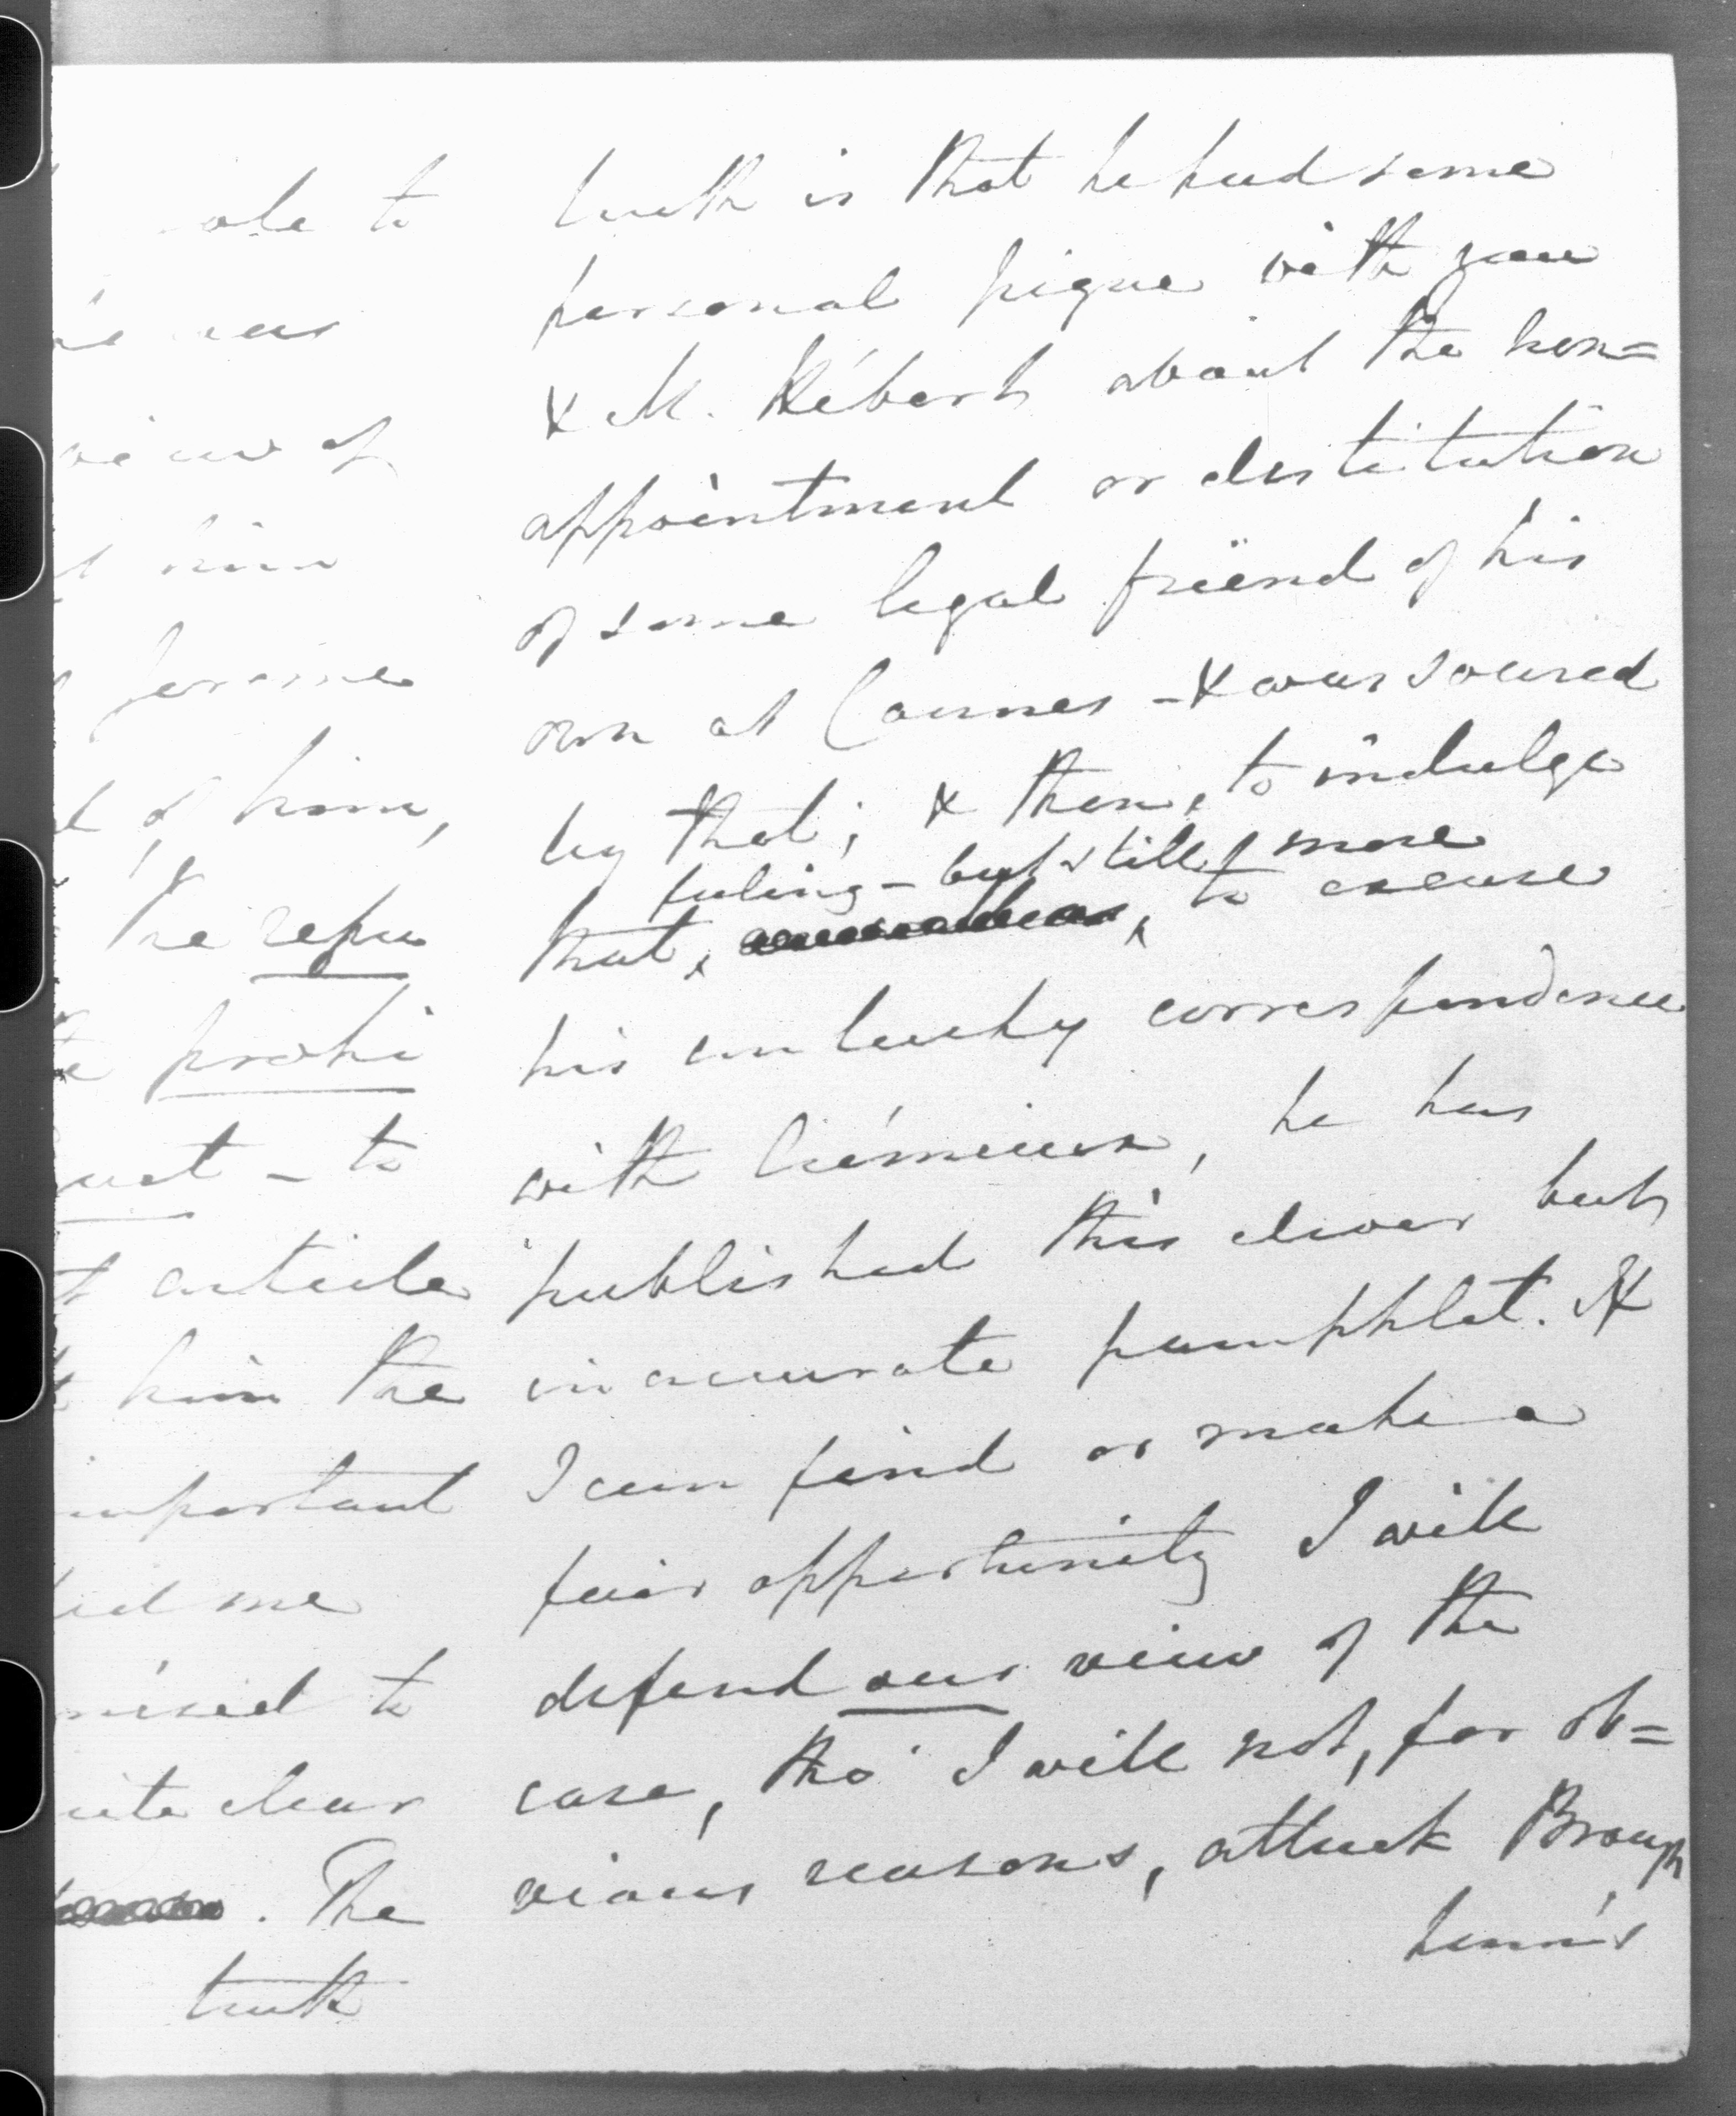 ole to
view of
him
ferme
of him,
the repu
prohi
ust - to
article
him the
important
did me
mised to
uite clear
. The
truth
truth is that he had some
personal pique with you
& M. Hébert about the non=
appointment or destitution
of some legal friend of his
own at Cannes - & was soured
by that; & then, to indulge
feeling - but still more
that, to excuse
his unlucky correspondence
with Crémieux, he has
published this clever but
inaccurate pamphlet. If
I can find or make a
fair opportunity I will
defend our view of the
case, tho' I will not, for ob=
vious reasons, attack Brough
ham's